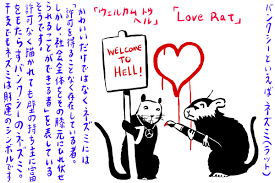 バンクシーといえばネズミ(ラット)
「Love Rat」
「ウェルカム トゥ ヘル」
WELCOME
TO
HeLL!
かわいいだけではなくネズミには
許可を得ることなく存在している者。
しかし社会全体をその膝元にひれ伏せ
られることができる者」を表している
許可なく描かれても壁の持ち主に富
をもたらすバンクシーのネズミ。
干支でもネズミは財運のシンボルです